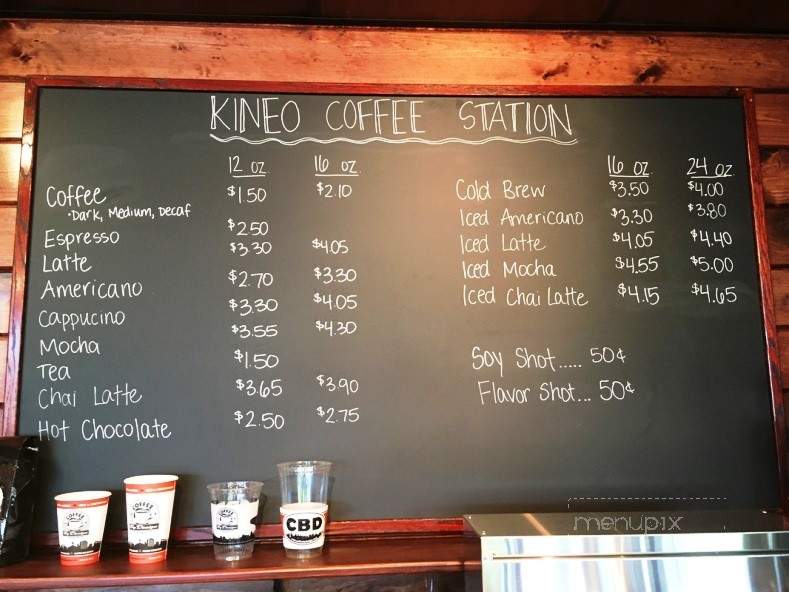 KINEO COFFEE STATION
12 oz 16 oz
Coffee $1.50 $2.10
·Dark, Medium, Decaf
Espresso $2.50
Latte $3.30 $4.05
Americano $2.70 $3.30
Cappucino $3.30 $4.05
Mocha $3.55 $4.30
Tea $1.50
Chai Latte $3.65 $3.90
Hot Chocolate $2.50 $2.75
16 oz 24 oz
Cold Brew $3.50 $4.00
Iced Americano $3.30 $3.80
Iced Latte $4.05 $4.40
Iced Mocha $4.55 $5.00
Iced Chai Latte $4.15 $4.65
Soy Shot..... 50¢
Flavor Shot... 50¢
COFFEE
COFFEE
CBD
menupix